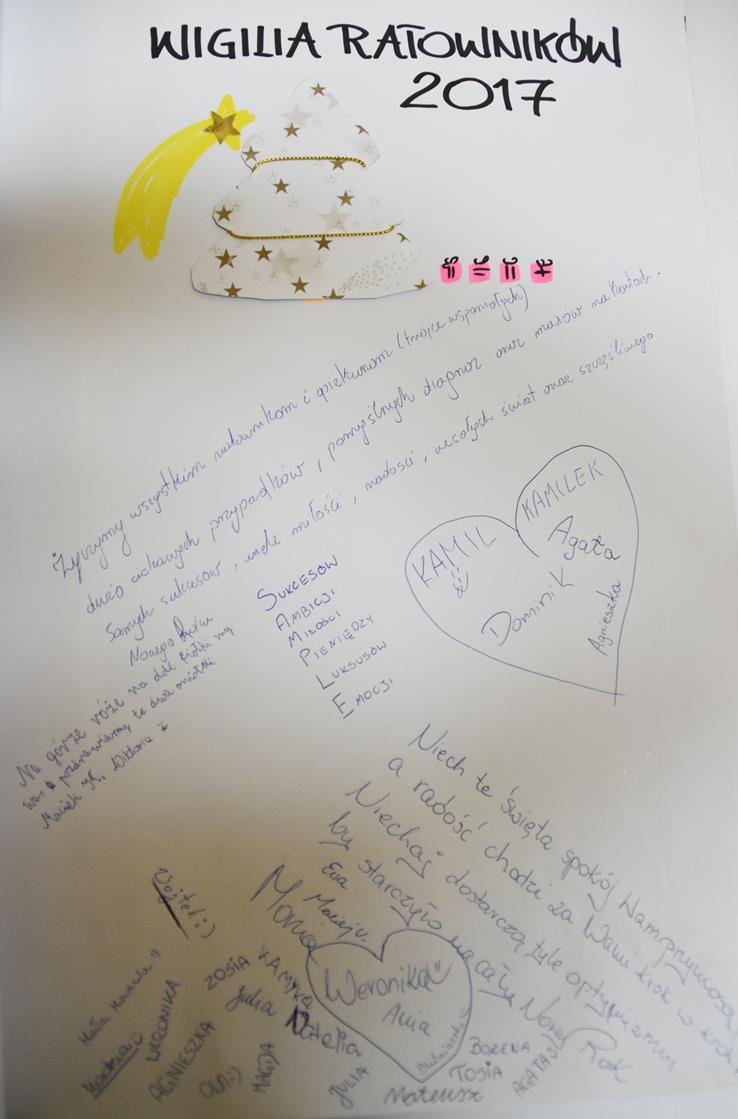 WIGILIA RATOWNIKÓW
2017
Życzymy wszystkim ratownikom i opiekunom (trójce wspaniałych)
dużo ciekawych przypadków, pomyślnych diagnoz oraz maxów na kartach.
Samych sukcesów, wiele miłości, radości, wesołych świat oraz szczęśliwego
Nowego Roku
SUKCESÓW
AMBICJI
MIŁOŚCI
PIENIĘDZY
LUKSUSÓW
EMOCJI
KAMIL
KAMILEK
Agata
Dominik
Agnieszka
Na górze róże na dole fiołki my
Was pozdrawiamy te dwa
Maciek K, Wiktoria
Niech te święta spokój Wam przyniosą
a radość chodzi za Wami krok w krok
Niechaj dostarczą tyle optymizmu
by starczyło na cały Nowy Rok
Ewa
Maciej W.
Monia
Wojtek :)
ZOSIA
KAMYKA
Julia
Natalia
Weronika
Ania
WERONIKA
AGNIESZKA
Ola :)
MAGDA
JULIA
Mateusz
BOŻENA
TOSIA
AGATA